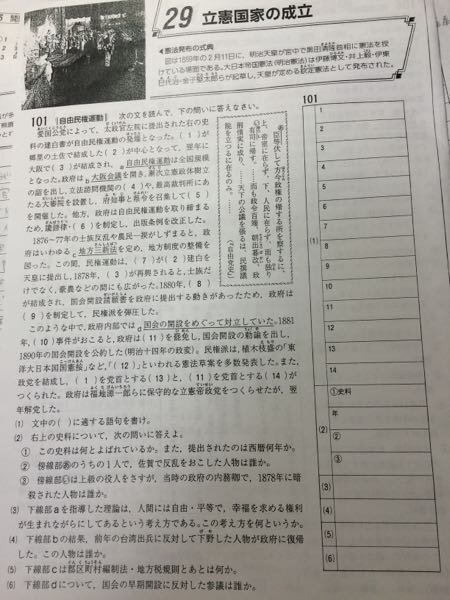 29 立憲国家の成立
◀憲法発布の式典
図は1889年の2月11日に，明治天皇が宮中で黒田清隆首相に憲法を授
けている場面である。大日本帝国憲法(明治憲法)は伊藤博文・井上毅・伊東
巳代治・金子堅太郎らが起草し，天皇が定める欽定憲法として発布された。
101 〔自由民権運動〕 次の文を読んで，下の問いに答えなさい。
愛国公党によって，太政官左院に提出された右の史
料の建白書が自由民権運動の発端となった。( 1 )が
郷里の土佐で結成した( 2 )が中心となって，翌年に
大阪で( 3 )が結成され，a自由民権運動は全国規模
となった。政府はb大阪会議を開き，漸次立憲政体樹立
の詔を出し，立法諮問機関の( 4 )や，最高裁判所にあ
たる大審院を設置し，府知事と県令を召集して( 5 )
を開催した。他方，政府は自由民権運動を取り締まる
ため，讒謗律・( 6 )を制定し，出版条例を改正した。
1876～77年の士族反乱や農民一揆がしずまると，政
府はいわゆるc地方三新法を定め，地方制度の整備を
図った。この間，民権運動は，( 7 )が( 2 )建白を
天皇に提出し，1878年，( 3 )が再興されると，士族だ
けでなく，豪農などの間にも広がった。1880年，( 8 )
が結成され，国会開設請願書を政府に提出する動きがあったため，政府は
( 9 )を制定して，民権派を弾圧した。
このような中で，政府内部ではd国会の開設をめぐって対立していた。1881
年，( 10 )事件がおこると，政府は( 11 )を罷免し，国会開設の勅諭を出し，
1890年の国会開設を公約した(明治十四年の政変)。民権派は，植木枝盛の「東
洋大日本国国憲按」など，「( 12 )」といわれる憲法草案を多数発表した。また，
政党を結成し，( 1 )を党首とする( 13 )と，( 11 )を党首とする( 14 )が
つくられた。政府は福地源一郎らに保守的な立憲帝政党をつくらせたが，翌
年解党した。
(1) 文中の( )に適する語句を書け。
(2) 右上の史料について，次の問いに答えよ。
① この史料は何とよばれているか。また，提出されたのは西暦何年か。
② 傍線部あのうちの1人で，佐賀で反乱をおこした人物は誰か。
③ 傍線部いは上級の役人をさすが，当時の政府の内務卿で，1878年に暗
殺された人物は誰か。
(3) 下線部aを指導した理論は，人間には自由・平等で，幸福を求める権利
が生まれながらにしてあるという考え方である。この考え方を何というか。
(4) 下線部bの結果，前年の台湾出兵に反対して下野した人物が政府に復帰
した。この人物は誰か。
(5) 下線部cは郡区町村編制法・地方税規則とあとは何か。
(6) 下線部dについて，国会の早期開設に反対した参議は誰か。
臣等伏して方今政権の帰する所を察するに，
上帝室に在らず，下人民に在らず，而も独り
有司に帰す。……而も政令百端，朝出暮改，政
刑情実に成り，……天下の公議を張るは，民撰議
院を立つるに在るのみ。……
(『自由党史』)
101
1
2
3
4
5
6
7
(1)
8
9
10
11
12
13
14
①史料
年
(2)
②
③
(3)
(4)
(5)
(6)